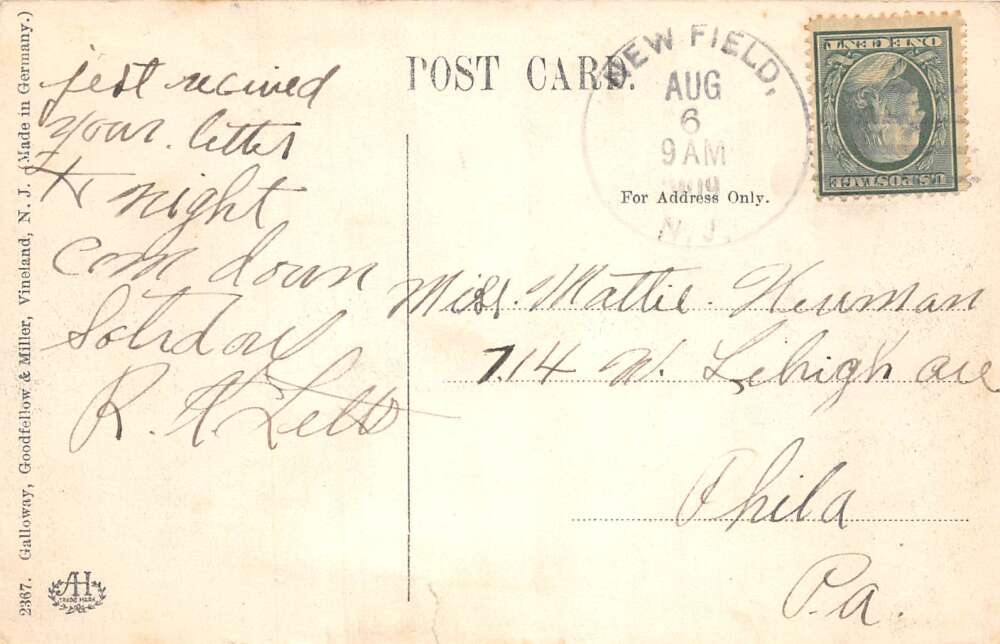 POST CARD.
NEW FIELD,
AUG
6
9 AM
1909
N. J.
ONE CENT
U.S. POSTAGE
For Address Only.
jest recived
your. letter
to night
com down
Soterday
R. H. Letts
Miss. Mattie. Newman
714 W. Lehigh ave
Phila
Pa.
2367. Galloway, Goodfellow & Miller, Vineland, N. J. (Made in Germany.)
AH
TRADE MARK